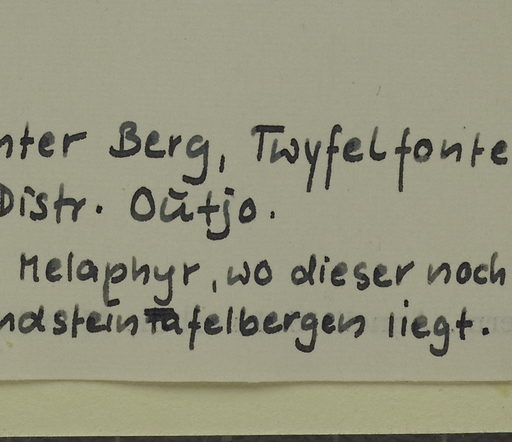 nter Berg, Twyfelfonte
Distr. Oūtjo.
Melaphyr, wo dieser noch
ndstein Tafelbergen liegt.